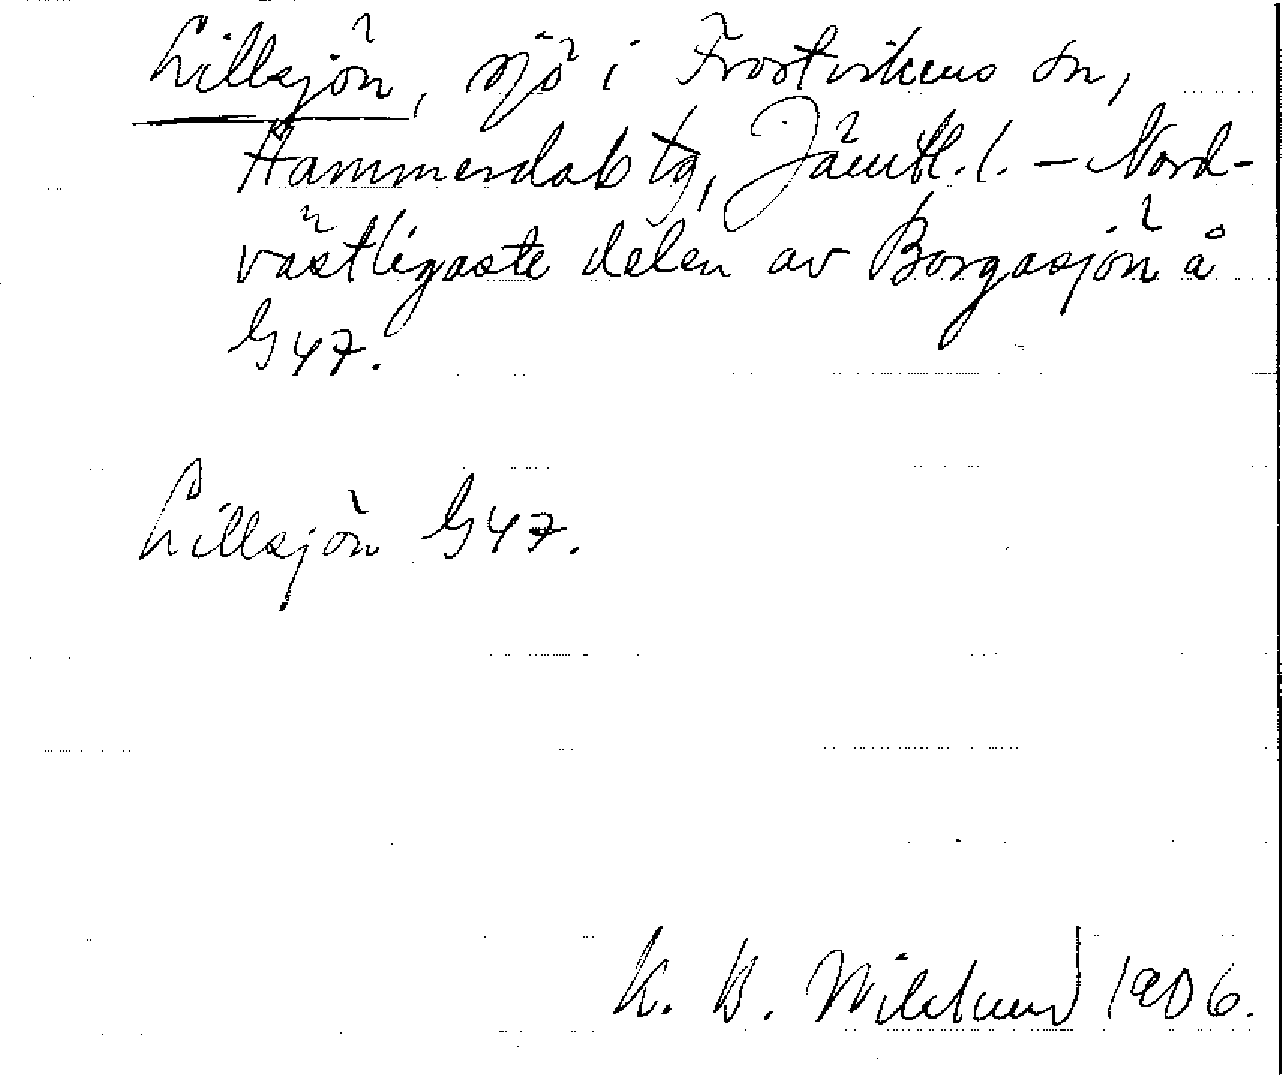 Lillsjön, sjö i Frostvikens sn,
Hammerdals tg, Jämtl. l. – Nord-
västligaste delen av Borgasjön å
G47.
Lillsjön G47.
K. B. Wiklund 1906.